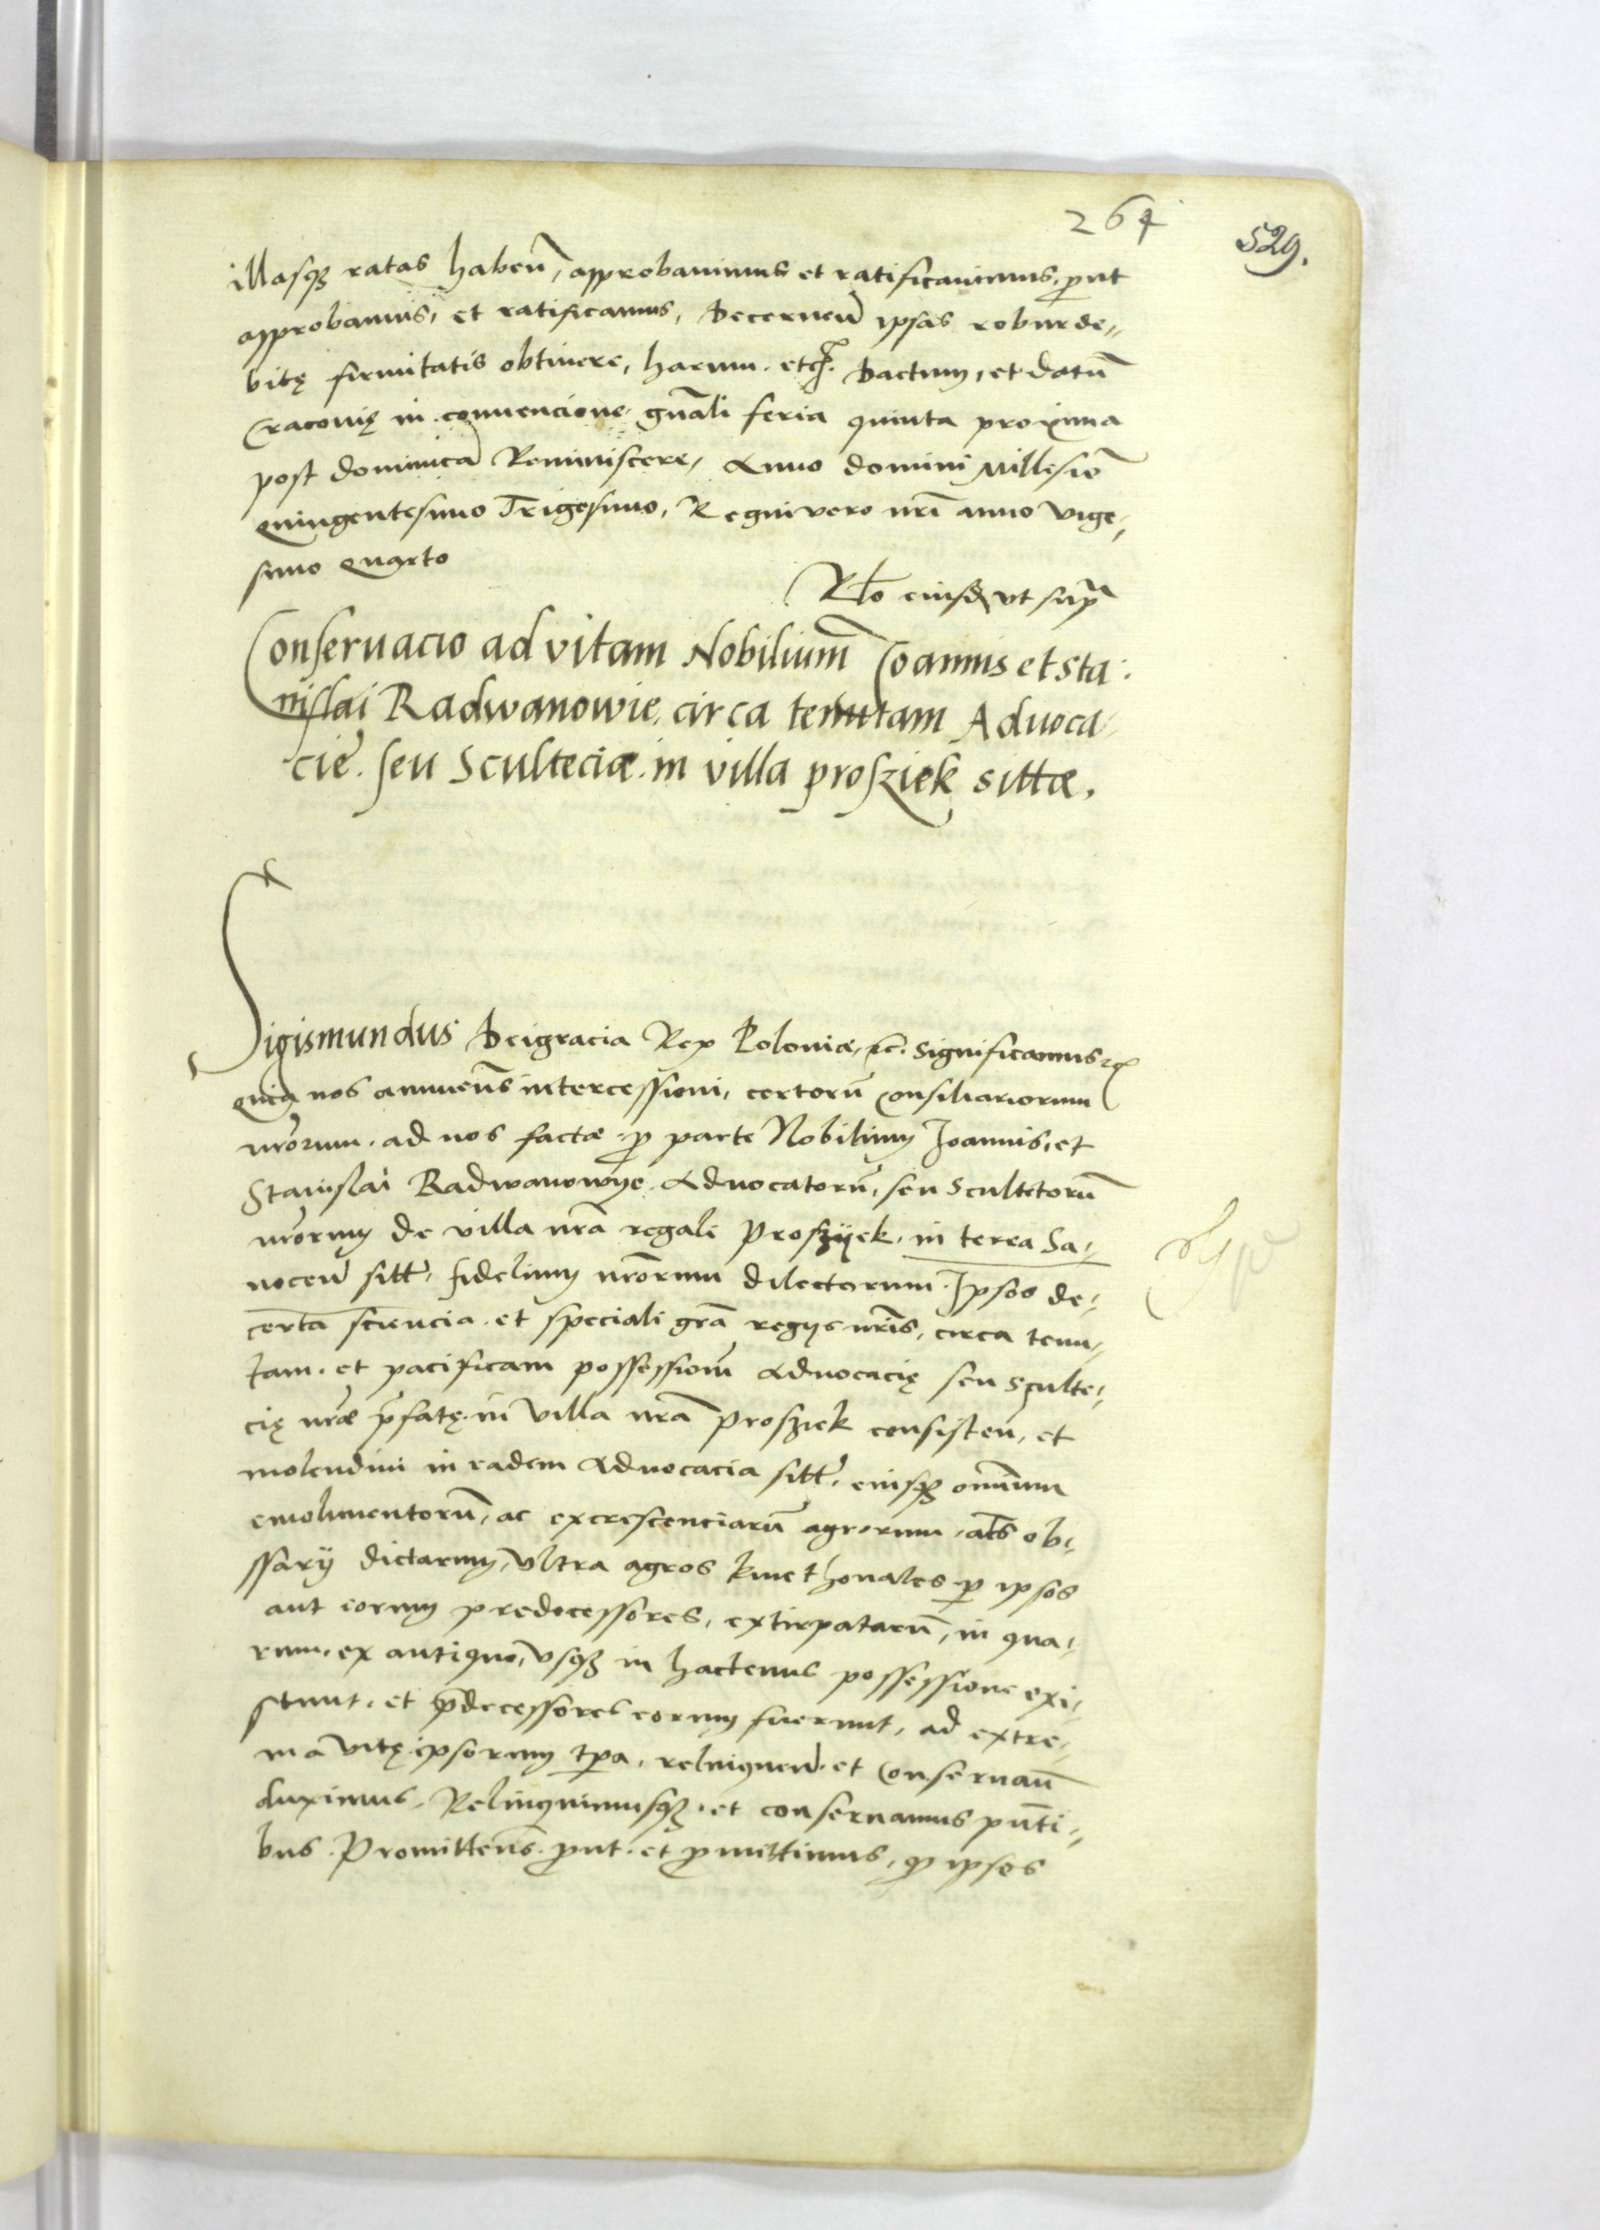 264
529.
illasq3 ratas habeñ, approbavimus et ratificavimus, prout
approbamus, et ratificamus, decerneñ ipsas robur de„
bitę firmitatis obtinere, harum. etc. Dactum, et datū
Cracovię in convencione gñali feria quinta proxima
post dominicā Reminiscere, Anno domini Millesiō
quingentesimo Trigesimo, Regni vero nrī anno vige„
simo quarto
Rlō eiusdē ut supra
Conservacio ad vitam Nobilium̄ Joannis et Sta:
nislai Radwanowie, circa tenutam Advoca„
cie. seu Sculteciæ. in villa prosziek sittæ.
Sigismundus Dei gracia Rex Poloniæ, etc. Significamus etc
quia nos annueñs intercessioni, certorū Consiliariorum
nrōrum. ad nos factæ. p parte Nobilium Joannis, et
Stanislai Radwanowye Advocatorū, seu Scultetorū
nrōrum de villa nrā regale Prosziiek, in terra Sa„
noceñ sitt, fidelium nrōrum dilectorum. Ipsos de„
certa sciencia. et speciali grā regys nrīs, circa tenu„
tam. et pacificam possessionē Advocacię seu Sculte„
cię nræ p̄fatę. in villa nrā prosziek consisteñ, et
molendini in eadem Advocacia sitt, eiusq3 omnium
emolimentorū, ac excrescenciarū agrorum, als ob„
ssarÿ dictarum, ultra agros kmethonales p ipsos
aut eorum predecessores, extirpatarū, in qua„
rum. ex antiquo, usq3 in hactenus possessione exi„
stunt. et p̄decessores eorum fuerunt, ad extre„
ma vitę ipsorum tpa, relinqueñ. et Conservañ
duximus, Relinquimusq3. et conservamus pn̄ti„
bus. Promitteñs. prout. et promittimus, q ipsos